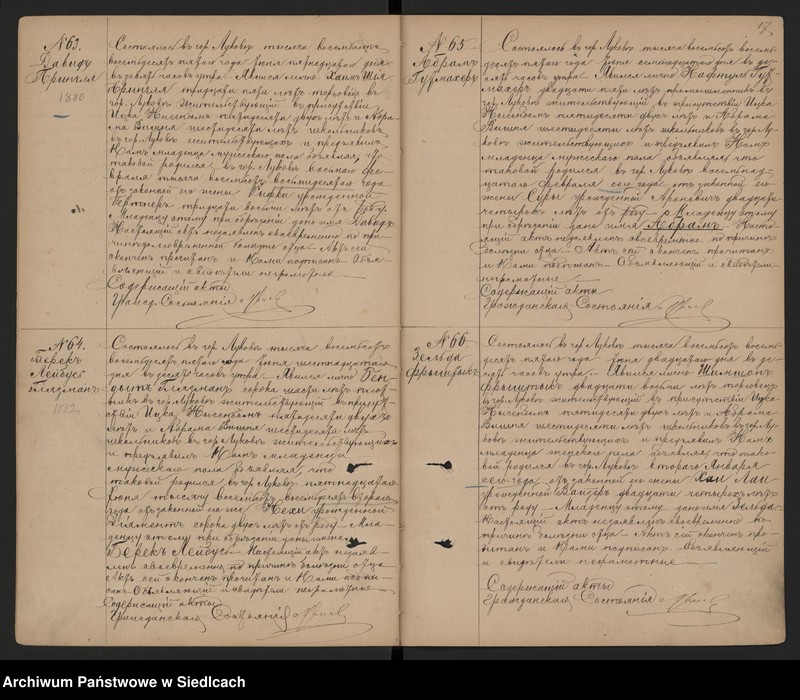 №63.
Давидъ
Прингля
1880
Состоялось въ гор. Луковѣ тысяча восемьсотъ
восемьдесятъ пятаго года Іюня пятнадцатаго дня
въ часовъ утра. Явился лично Хаимъ Шія
Прингля тридцати пяти лѣтъ
гор. Луковѣ жительствующій въ присутствіи
Ицка пятидесяти двухъ лѣтъ и Абра-
ма Вишня шестидесяти лѣтъ школьниковъ
въ гор. Луковѣ жительствующихъ и предъявилъ
Намъ младенца мужескаго пола объявляя, что
таковой родился въ гор. Луковѣ восьмаго фе-
враля тысяча восемьсотъ восьмидесятаго года
отъ законной его жены Рифки урожденной
тридцати восьми лѣтъ отъ роду.
Младенцу этому при обрѣзаніи дано имя Давидъ
Настоящій актъ своевременно по при-
отца. Актъ сей
оконченъ прочитанъ и Нами подписанъ. Объя-
вляющій и свидѣтели неграмотные
Содержащій акты
Гражд. Состоянія
№64.
Берекъ
Лейбусь
Глязманъ
1882
Состоялось въ гор. Луковѣ тысяча восемьсотъ
восемьдесятъ пятаго года Іюня шестнадцатаго
дня въ часовъ утра. Явился лично
Глязманъ сорока шести лѣтъ
въ гор. Луковѣ жительствующій въ присут-
ствіи Ицка пятидесяти двухъ
лѣтъ и Абрама Вишня шестидесяти лѣтъ
школьниковъ въ гор. Луковѣ жительствующихъ
и предъявилъ Намъ младенца
мужескаго пола объявляя, что
таковой родился въ гор. Луковѣ пятнадцатаго
Іюня тысяча восемьсотъ восемьдесятъ втораго
года отъ законной его жены Нехи урожденной
Діяментъ сорока двухъ лѣтъ отъ роду. Мла-
денцу этому при обрѣзаніи дано имя
Берекъ Лейбусь. Настоящій актъ
своевременно по причинѣ болѣзни отца
Актъ сей оконченъ прочитанъ и Нами подпи-
санъ Объявляющій и свидѣтели неграмотные
Содержащій акты
Гражданскаго Состоянія
17
№65
Абрамъ
Гутмахеръ
Состоялось въ гор. Луковѣ тысяча восемьсотъ восемь-
десятъ пятаго года Іюня семнадцатаго дня въ де-
часовъ утра. Явился лично Нафтула Гут-
махеръ двадцати пяти лѣтъ въ
гор. Луковѣ жительствующій въ присутствіи Ицка
пятидесяти двухъ лѣтъ и Абрама
Вишня шестидесяти лѣтъ школьниковъ въ гор. Лу-
ковѣ жительствующихъ и предъявилъ Намъ
младенца мужескаго пола объявляя, что
таковой родился въ гор. Луковѣ
цатаго февраля сего года отъ законной его
жены Суры урожденной двадцати
четырехъ лѣтъ отъ роду. Младенцу этому
при обрѣзаніи дано имя Абрамъ. Насто-
ящій актъ своевременно по причинѣ
болѣзни отца. Актъ сей оконченъ прочитанъ
и Нами подписанъ. Объявляющій и свидѣтели
неграмотные
Содержащій акты
Гражданскаго Состоянія
№66
Зельда
Состоялось въ гор. Луковѣ тысяча восемьсотъ восемь-
десятъ пятаго года Іюня двадцатаго дня въ де-
часовъ утра. Явился лично Шимшонъ
двадцати восьми лѣтъ
въ гор. Луковѣ жительствующій въ присутствіи Ицка
пятидесяти двухъ лѣтъ и Абрама
Вишня шестидесяти лѣтъ школьниковъ въ гор. Лу-
ковѣ жительствующихъ и предъявилъ Намъ
младенца женскаго пола объявляя, что тако-
вой родился въ гор. Луковѣ втораго Января
сего года отъ законной его жены Хаи
урожденной двадцати четырехъ лѣтъ
отъ роду. Младенцу этому дано имя Зельда.
Настоящій актъ своевременно по
причинѣ болѣзни отца. Актъ сей оконченъ про-
читанъ и Нами подписанъ. Объявляющій
и свидѣтели неграмотные
Содержащій акты
Гражданскаго Состоянія
Archiwum Państwowe w Siedlcach